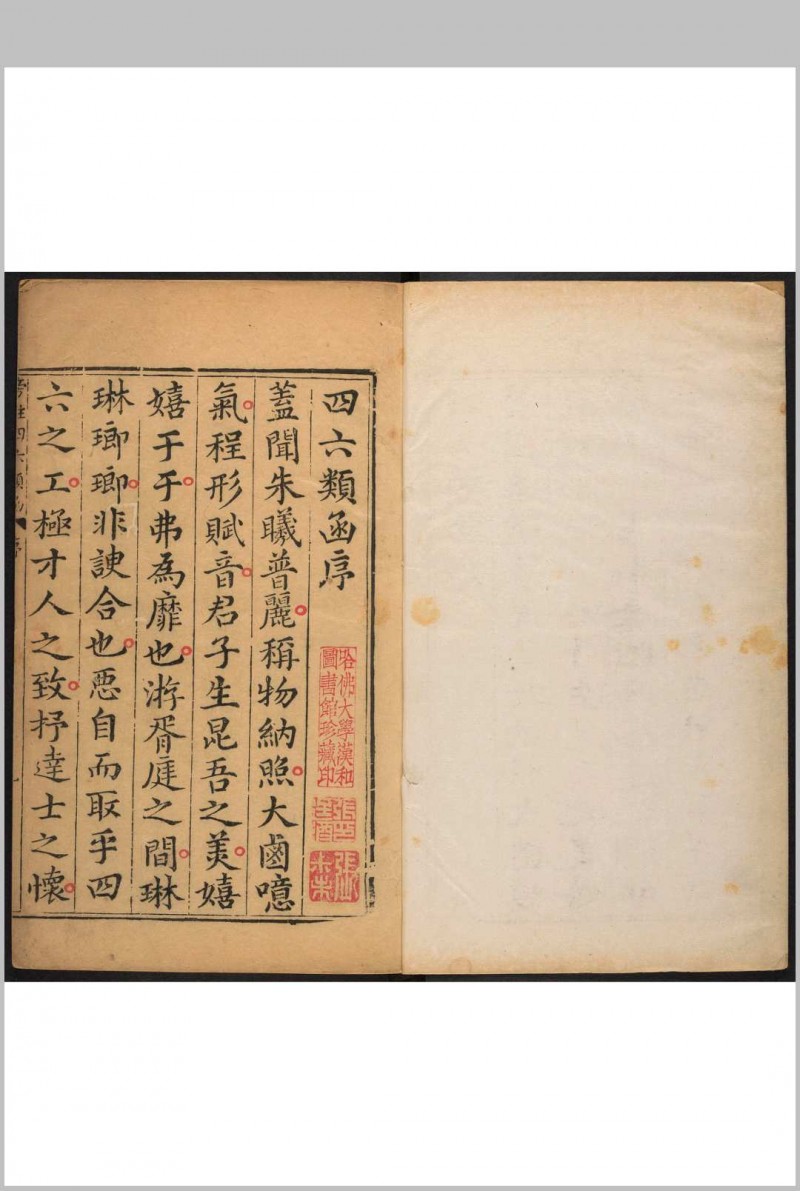 四六類函序
哈佛大學漢和
圖書館珍藏印
蓋聞朱曦普麗稱物納照大鹵噫
氣程形賦音君子生昆吾之美嬉
嬉于于弗為靡也游胥庭之間琳
琳瑯瑯非諛合也惡自而取乎四
六之工極才人之致抒達士之懷
四六類函 序